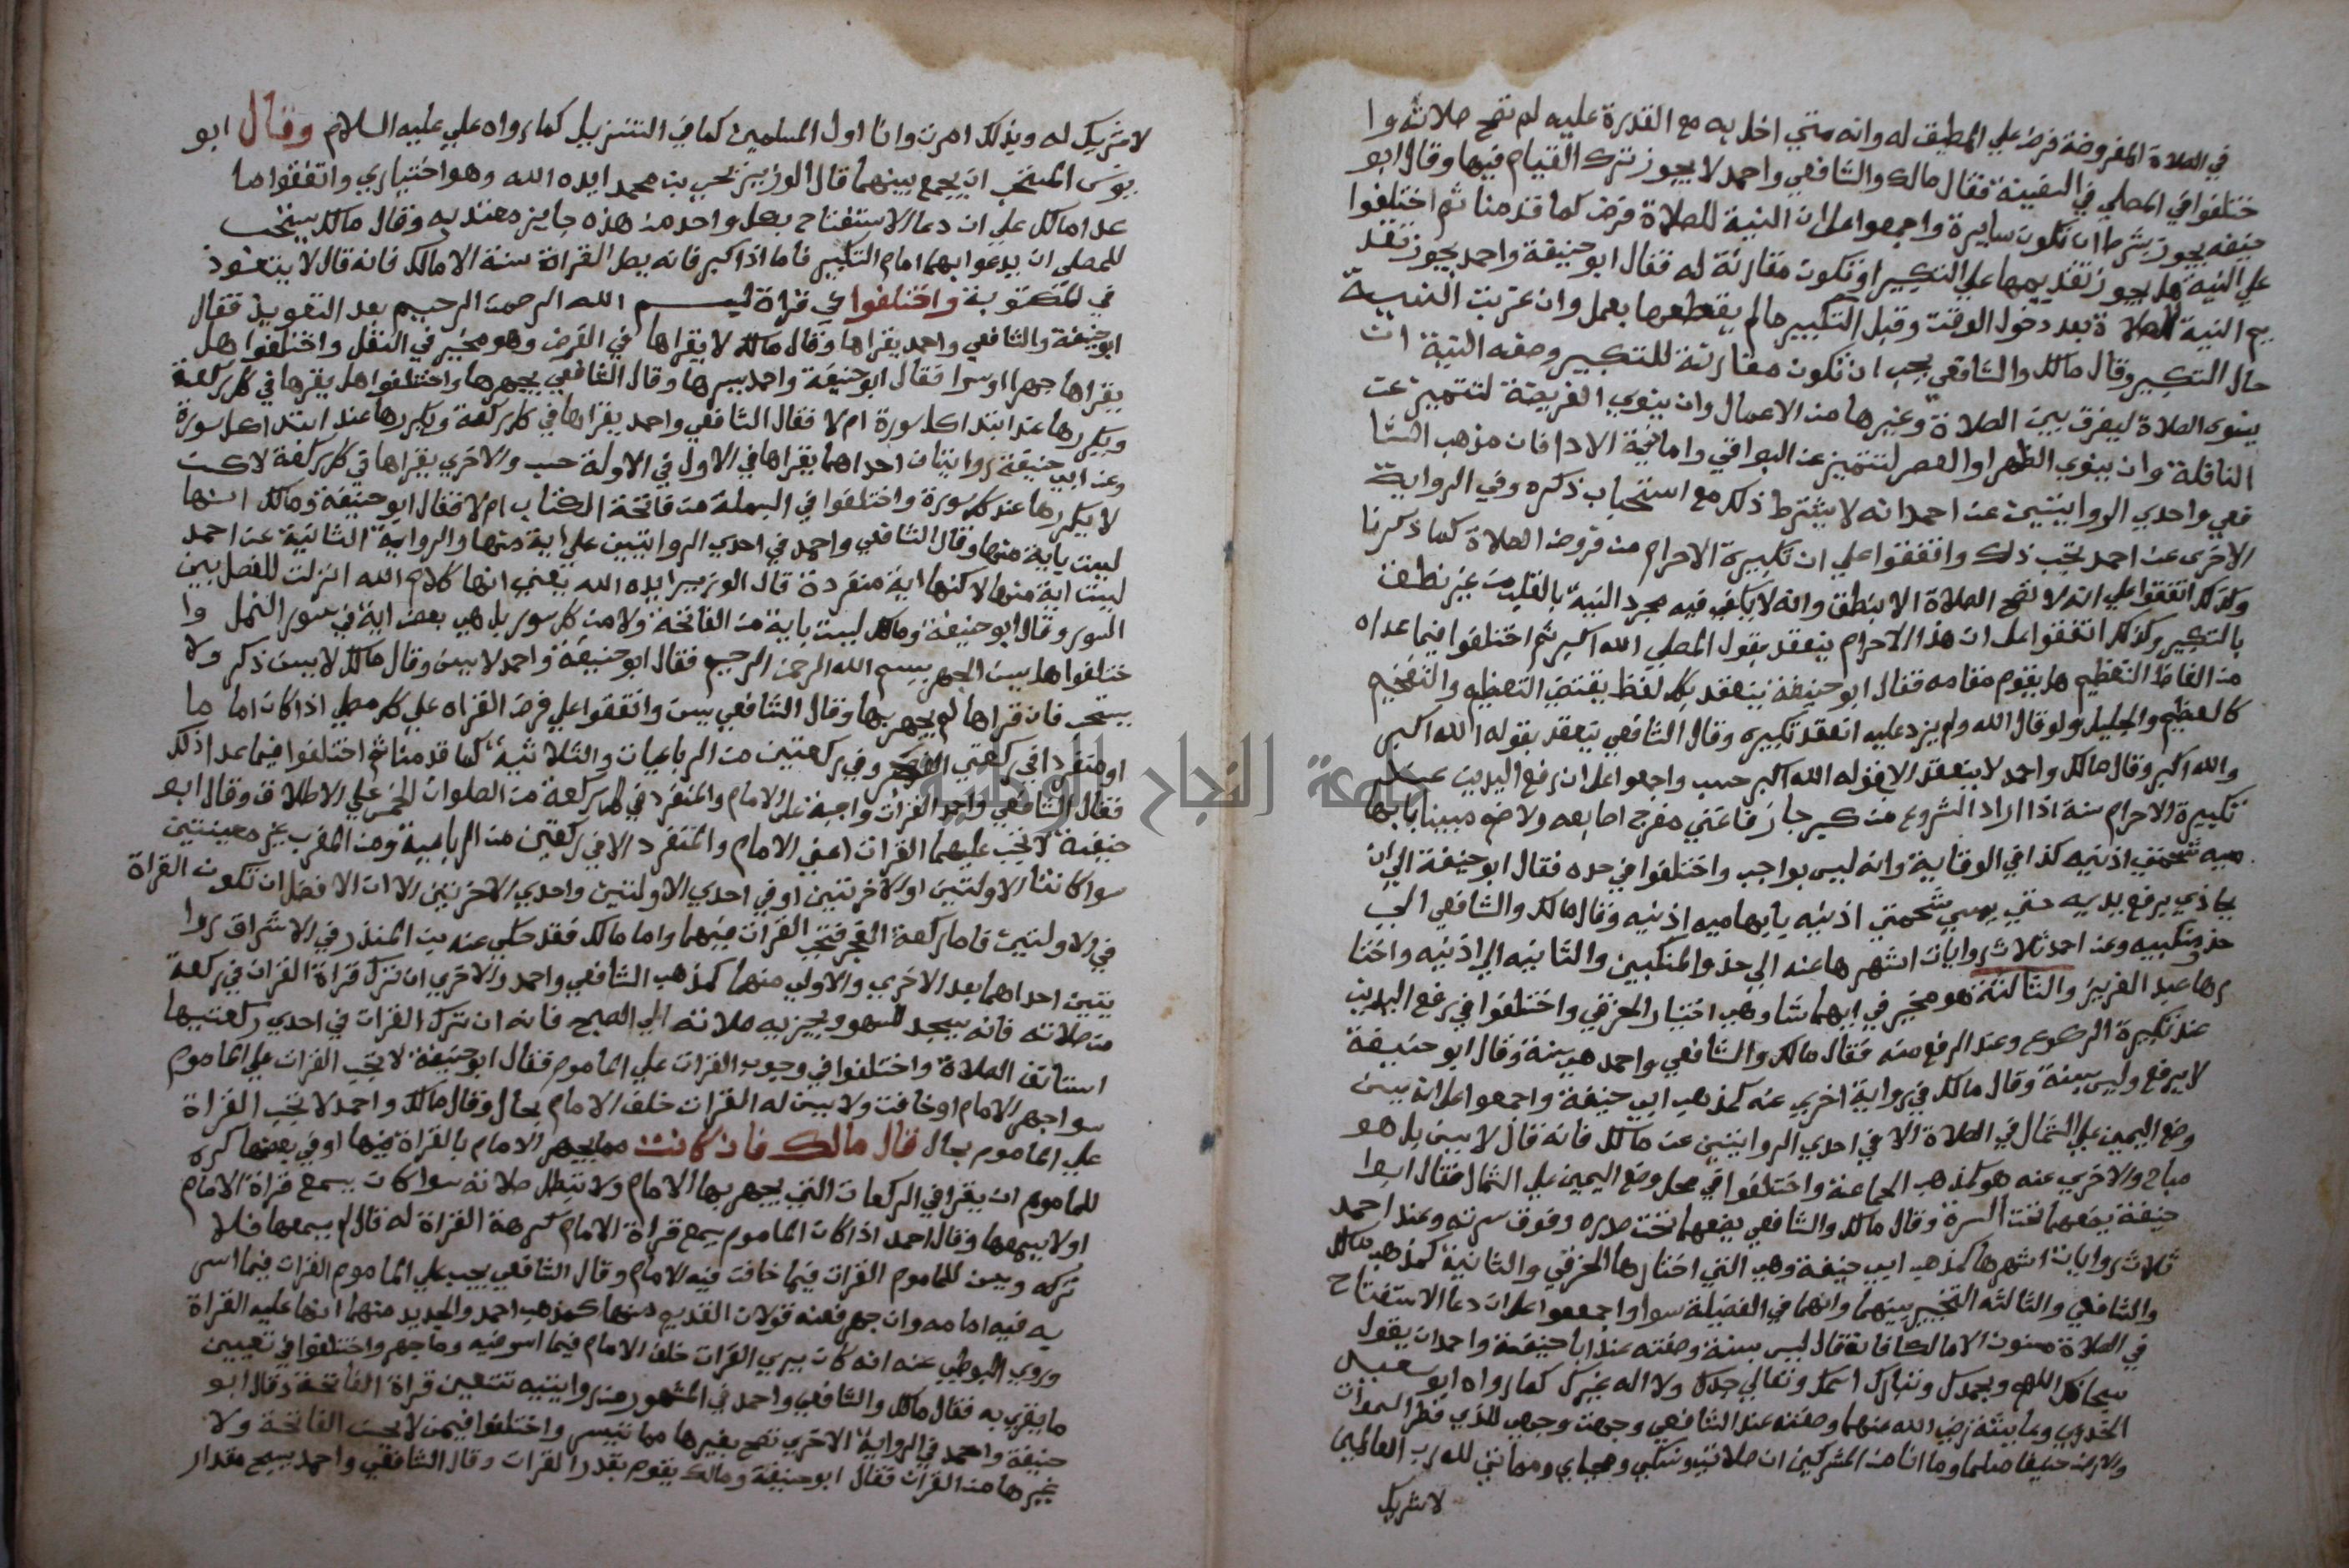 في الصلاة المفروضة فرض علي المطيق له وانه متي اخل به مع القدرة عليه لم تصح صلاته وا
ختلفوا في المصلي في السفينة فقال مالك والشافعي واحمد لا يجوز ترك القيام فيها وقال ابو
حنيفه يجوز بشرط ان تكون سايرة واجمعوا على ان النية للصلاة فرض كما قدمنا ثم اختلفوا
علي النيه هل يجوز تقديمها علي التكبير او تكون مقارنة له فقال ابو حنيفة واحمد يجوز تقد
يم النية للصلاة بعد دخول الوقت وقبل التكبير ما لم يقطعها بعمل وان عزبت النية
حال التكبير وقال مالك والشافعي يجب ان تكون مقارنة للتكبير وصفه النية ان
ينوى الصلاة ليفرق بين الصلاة وغيرها من الاعمال وان ينوي الفريضة لتتميز عن
النافلة وان ينوي الظهر او العصر لتتميز عن البواقي واما نية الادا فان مذهب الشا
فعي واحدي الروايتين عن احمد انه لا يشترط ذلك مع استحباب ذكره وفي الرواية
الاخرى عن احمد تجب ذلك واتفقوا علي ان تكبيرة الاحرام من فروض الصلاة كما ذكرنا
وكذلك اتفقوا علي انه لا تصح الصلاة الا بنطق وانه لا يكفي فيه مجرد النية بالقلب من غير نطق
بالتكبير وكذلك اتفقوا على ان هذا الاحرام ينعقد بقول المصلي الله اكبر ثم اختلفوا فيما عداه
من الفاظ التعظيم هل يقوم مقامه فقال ابو حنيفة ينعقد بكل لفظ يقتضي التعظيم والتفخيم
كالعظيم والجليل ولو قال الله ولم يزد عليه انعقد تكبيره وقال الشافعي ينعقد بقوله الله اكبر
والله اكبر وقال مالك واحمد لا ينعقد الا بقوله الله اكبر حسب واجمعوا على ان رفع اليدين عند
تكبيرة الاحرام سنة اذا اراد الشروع من كبر جا رفا عني مفرج اصابعه ولا ضم مبينا بابها
ميه شحمتي اذنيه كذا في الوقاية وانه ليس بواجب واختلفوا في حده فقال ابو حنيفة الي ان
يحاذي يرفع يديه حتي يمس شحمتي اذنيه بابهاميه اذنيه وقال مالك والشافعي الي
حذو منكبيه وعن احمد ثلاث روايات اشهرها عنه الي حذو المنكبين والثانيه الي اذنيه واختا
رها عبد العزيز والثالثة هو مخير في ايهما شا وهي اختيار الخرقي واختلفوا في رفع اليدين
عند تكبيرة الركوع وعند الرفع منه فقال مالك والشافعي واحمد هو سنة وقال ابو حنيفة
لا يرفع وليس بسنة وقال مالك في رواية اخري عنه كمذهب ابي حنيفة واجمعوا على انه يسن
وضع اليمين علي الشمال في الصلاة الا في احدي الروايتين عن مالك فانه قال لا يسن بل هو
مباح والاخري عنه هو كمذهب الجماعة واختلفوا في محل وضع اليمين علي الشمال فقال ابوا
حنيفة يضعهما تحت السرة وقال مالك والشافعي يضعهما تحت صدره وفوق سرته وعند احمد
ثلاث روايات اشهرها كمذهب ابي حنيفة وهي التي اختارها الخرقي والثانية كمذهب مالك
والشافعي والثالثه التخيير بينهما وانهما في الفضيلة سوا واجمعوا على ان دعا الاستفتاح
في الصلاة مسنون الا مالكا فانه قال ليس بسنة وصفته عند ابا حنيفة واحمد ان يقول
سبحانك اللهم وبحمدك وتبارك اسمك وتعالي جدك ولا اله غيرك كما رواه ابو سعيد
الخدري وعايشة رضي الله عنهما وصفته عند الشافعي وجهت وجهي للذي فطر السموات
والارض حنيفا مسلما وما انا من المشركين ان صلاتي ونسكي ومحياي ومماتي لله رب العالمين
لا شريك
لا شريك له وبذلك امرت وانا اول المسلمين كما في التنزيل كما رواه علي عليه السلام وقال ابو
يوسف المستحب ان يجمع بينهما قال الوزير يحيي بن محمد ايده الله وهو اختياري واتفقوا ما
عدا مالك علي ان دعا الاستفتاح بكل واحد من هذه جايز معتد به وقال مالك يستحب
للمصلي ان يدعوا بهما امام التكبير فاما اذا كبر فانه يصل القراة سنة الا مالك فانه قال لا يتعوذ
في المكتوبة واختلفوا في قراة بسم الله الرحمن الرحيم بعد التعويذ فقال
ابو حنيفة والشافعي واحمد يقراها وقال مالك لا يقراها في الفرض وهو مخير في النفل واختلفوا هل
يقراها جهرا او سرا فقال ابو حنيفة واحمد يسرها وقال الشافعي يجهرها واختلفوا هل يقرها في كل ركعة
ويكررها عند ابتدا كل سورة ام لا فقال الشافعي واحمد يقراها في كل ركعة ويكررها عند ابتدا كل سورة
وعن ابي حنيفة روايتان احداهما يقراها في الاول في الاولة حسب والاخري يقراها في كل ركعة لاكن
لا يكررها عند كل سورة واختلفوا في البسملة من فاتحة الكتاب ام لا فقال ابو حنيفة ومالك انها
ليست باية منها وقال الشافعي واحمد في احدي الروايتين علي اية منها والرواية الثانية عن احمد
ليست اية منها لاكنها اية منفردة قال الوزير ايده الله يعني انها كلام الله انزلت للفصل بين
السور وقال ابو حنيفة ومالك ليست باية من الفاتحة ولا من كل سور بل هي بعض اية في سور النمل وا
ختلفوا هل يسن الجهر ببسم الله الرحمن الرحيم فقال ابو حنيفة واحمد لا يسن وقال مالك لا يسن ذكر ولا
يستحب فان قراها لم يجهر بها وقال الشافعي يسن واتفقوا علي فرض القراه علي كل مصلي اذا كان اما ما
او منفردا في ركعتي الفجر وفي ركعتين من الرباعيات والثلاثية كما قدمنا ثم اختلفوا فيما عدا ذلك
فقال الشافعي واحمد القرات واجبة على الامام والمنفرد في كل ركعة من الصلوات الخمس علي الاطلاق وقال ابو
حنيفة لا تجب عليهما القرات اعني الامام والمنفرد الا في ركعتين من الرباعية ومن المغرب غير معينتين
سوا كانتا الاولتين او الاخرتين او في احدي الاولتين واحدي الاخرتين الا ان الافضل ان تكون القراة
في الاولتين فاما ركعة الفجر فتجب القرات فيهما واما مالك فقد حكي عنه بن المنذر في الاشراق روا
يتين احداهما بعد الاخري والاولي منهما كمذهب الشافعي واحمد والاخري ان ترك قراة القران في ركعة
من صلاته فانه يسجد للسهو ويجزيه صلاته الي الصبح فانه ان ترك القرات في احدي ركعتيها
استانف الصلاة واختلفوا في وجوب القرات علي الماموم فقال ابو حنيفة لا تجب القرات علي الماموم
سوا جهر الامام او خافت ولا يسن له القرات خلف الامام بحال وقال مالك واحمد لا تجب القراة
علي الماموم بحال قال مالك فان كانت مما يجهر الامام بالقراة فيها او في بعضها كره
للماموم ان يقرا في الركعات التي يجهر بها الامام ولا تبطل صلاته سوا كان يسمع قراة الامام
او لا يسمعها وقال احمد اذا كان الماموم يسمع قراة الامام كرهة القراة له قال لم يسمعها فلا
تركه ويسن للماموم القرات فيما خافت فيه الامام وقال الشافعي يجب علي الماموم القرات فيما اسر
به فيه امامه وان جهر فعنه قولان القديم منهما كمذهب احمد والجديد منهما انها عليه القراة
وروي البوطي عنه انه كان يري القرات خلف الامام فيما اسر فيه وما جهر واختلفوا في تعيين
ما يقري به فقال مالك والشافعي واحمد في المشهور من روايتيه تتعين قراة الفاتحة وقال ابو
حنيفة واحمد في الرواية الاخري تصح بغيرها مما تيسر واختلفوا فيمن لا يحسن الفاتحة ولا
غيرها من القران فقال ابو حنيفة ومالك يقوم بقدر القرات وقال الشافعي واحمد يسبح مقدار
جامعة النجاح الوطنية